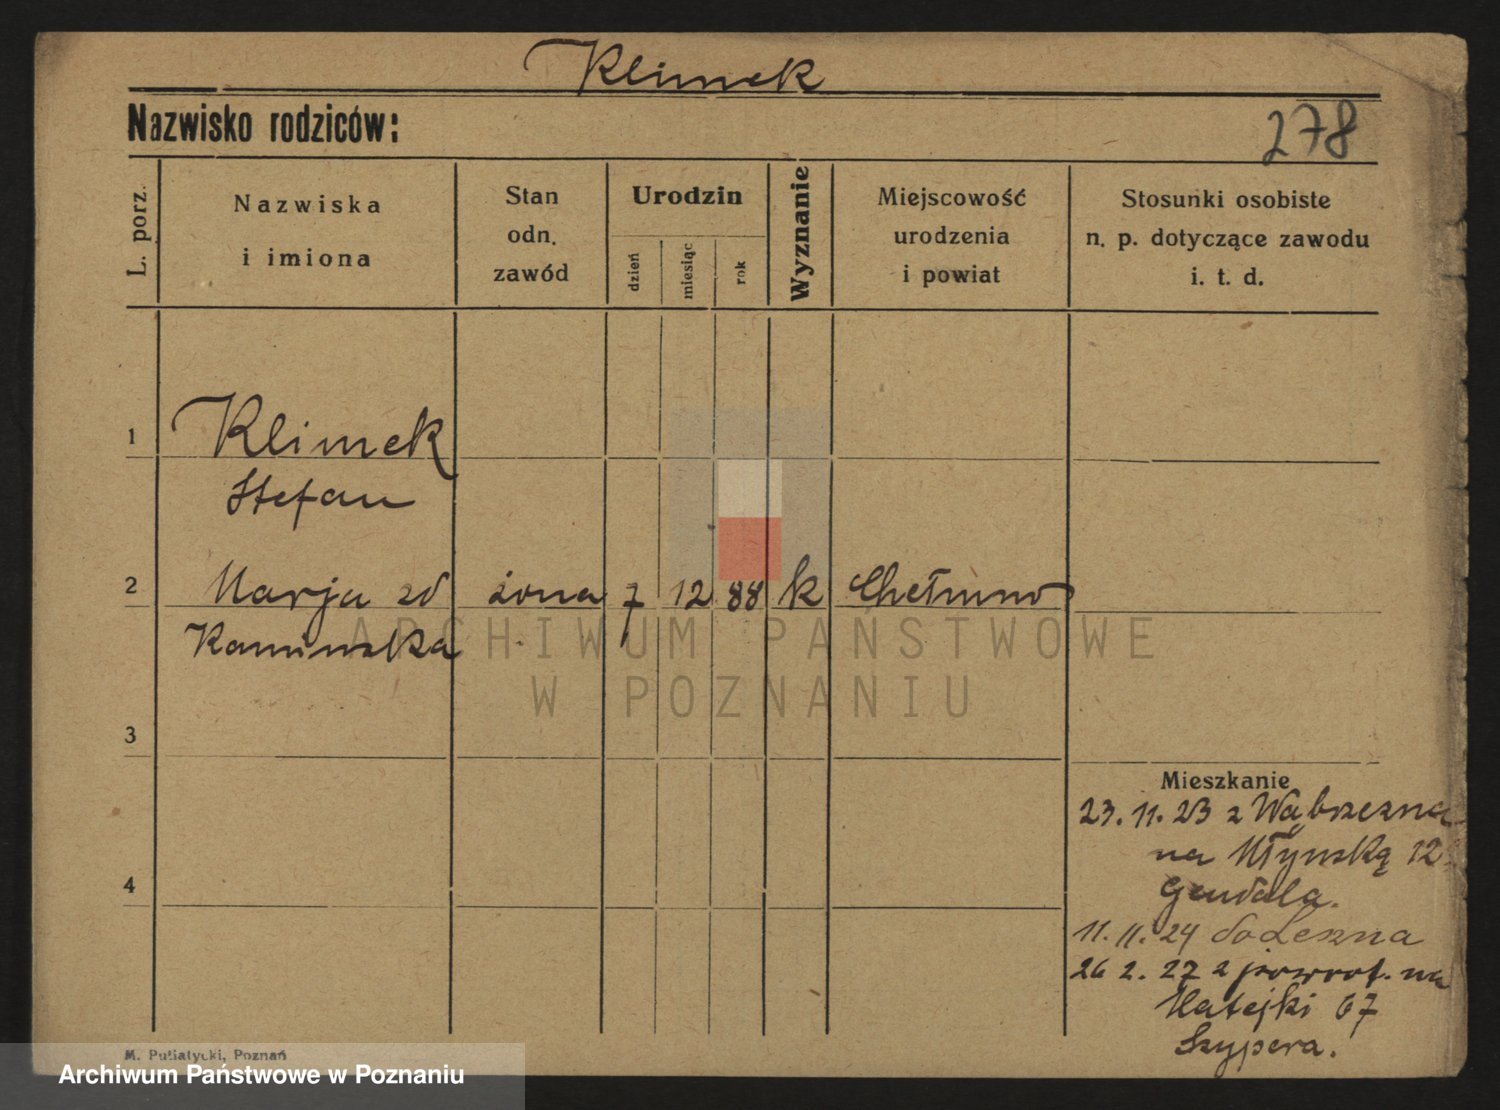 Klimek
Nazwisko rodziców:
278
L. porz.
Nazwiska
i imiona
Stan
odn.
zawód
Urodzin
dzień
miesiąc
rok
Wyznanie
Miejscowość
urodzenia
i powiat
Stosunki osobiste
n. p. dotyczące zawodu
i. t. d.
1
Klimek
Stefan
2
Marja zd żona 7 12 88 k Chełmno
Kamińska
3
4
Mieszkanie
23. 11. 23 z Wąbrzezna
na Młynską 12
Gendala.
11. 11. 24 do Leszna
26 2. 27 z powrot. na
Matejki 67
Szypera.
M. Putiatycki, Poznań
ARCHIWUM PAŃSTWOWE
W POZNANIU
Archiwum Państwowe w Poznaniu